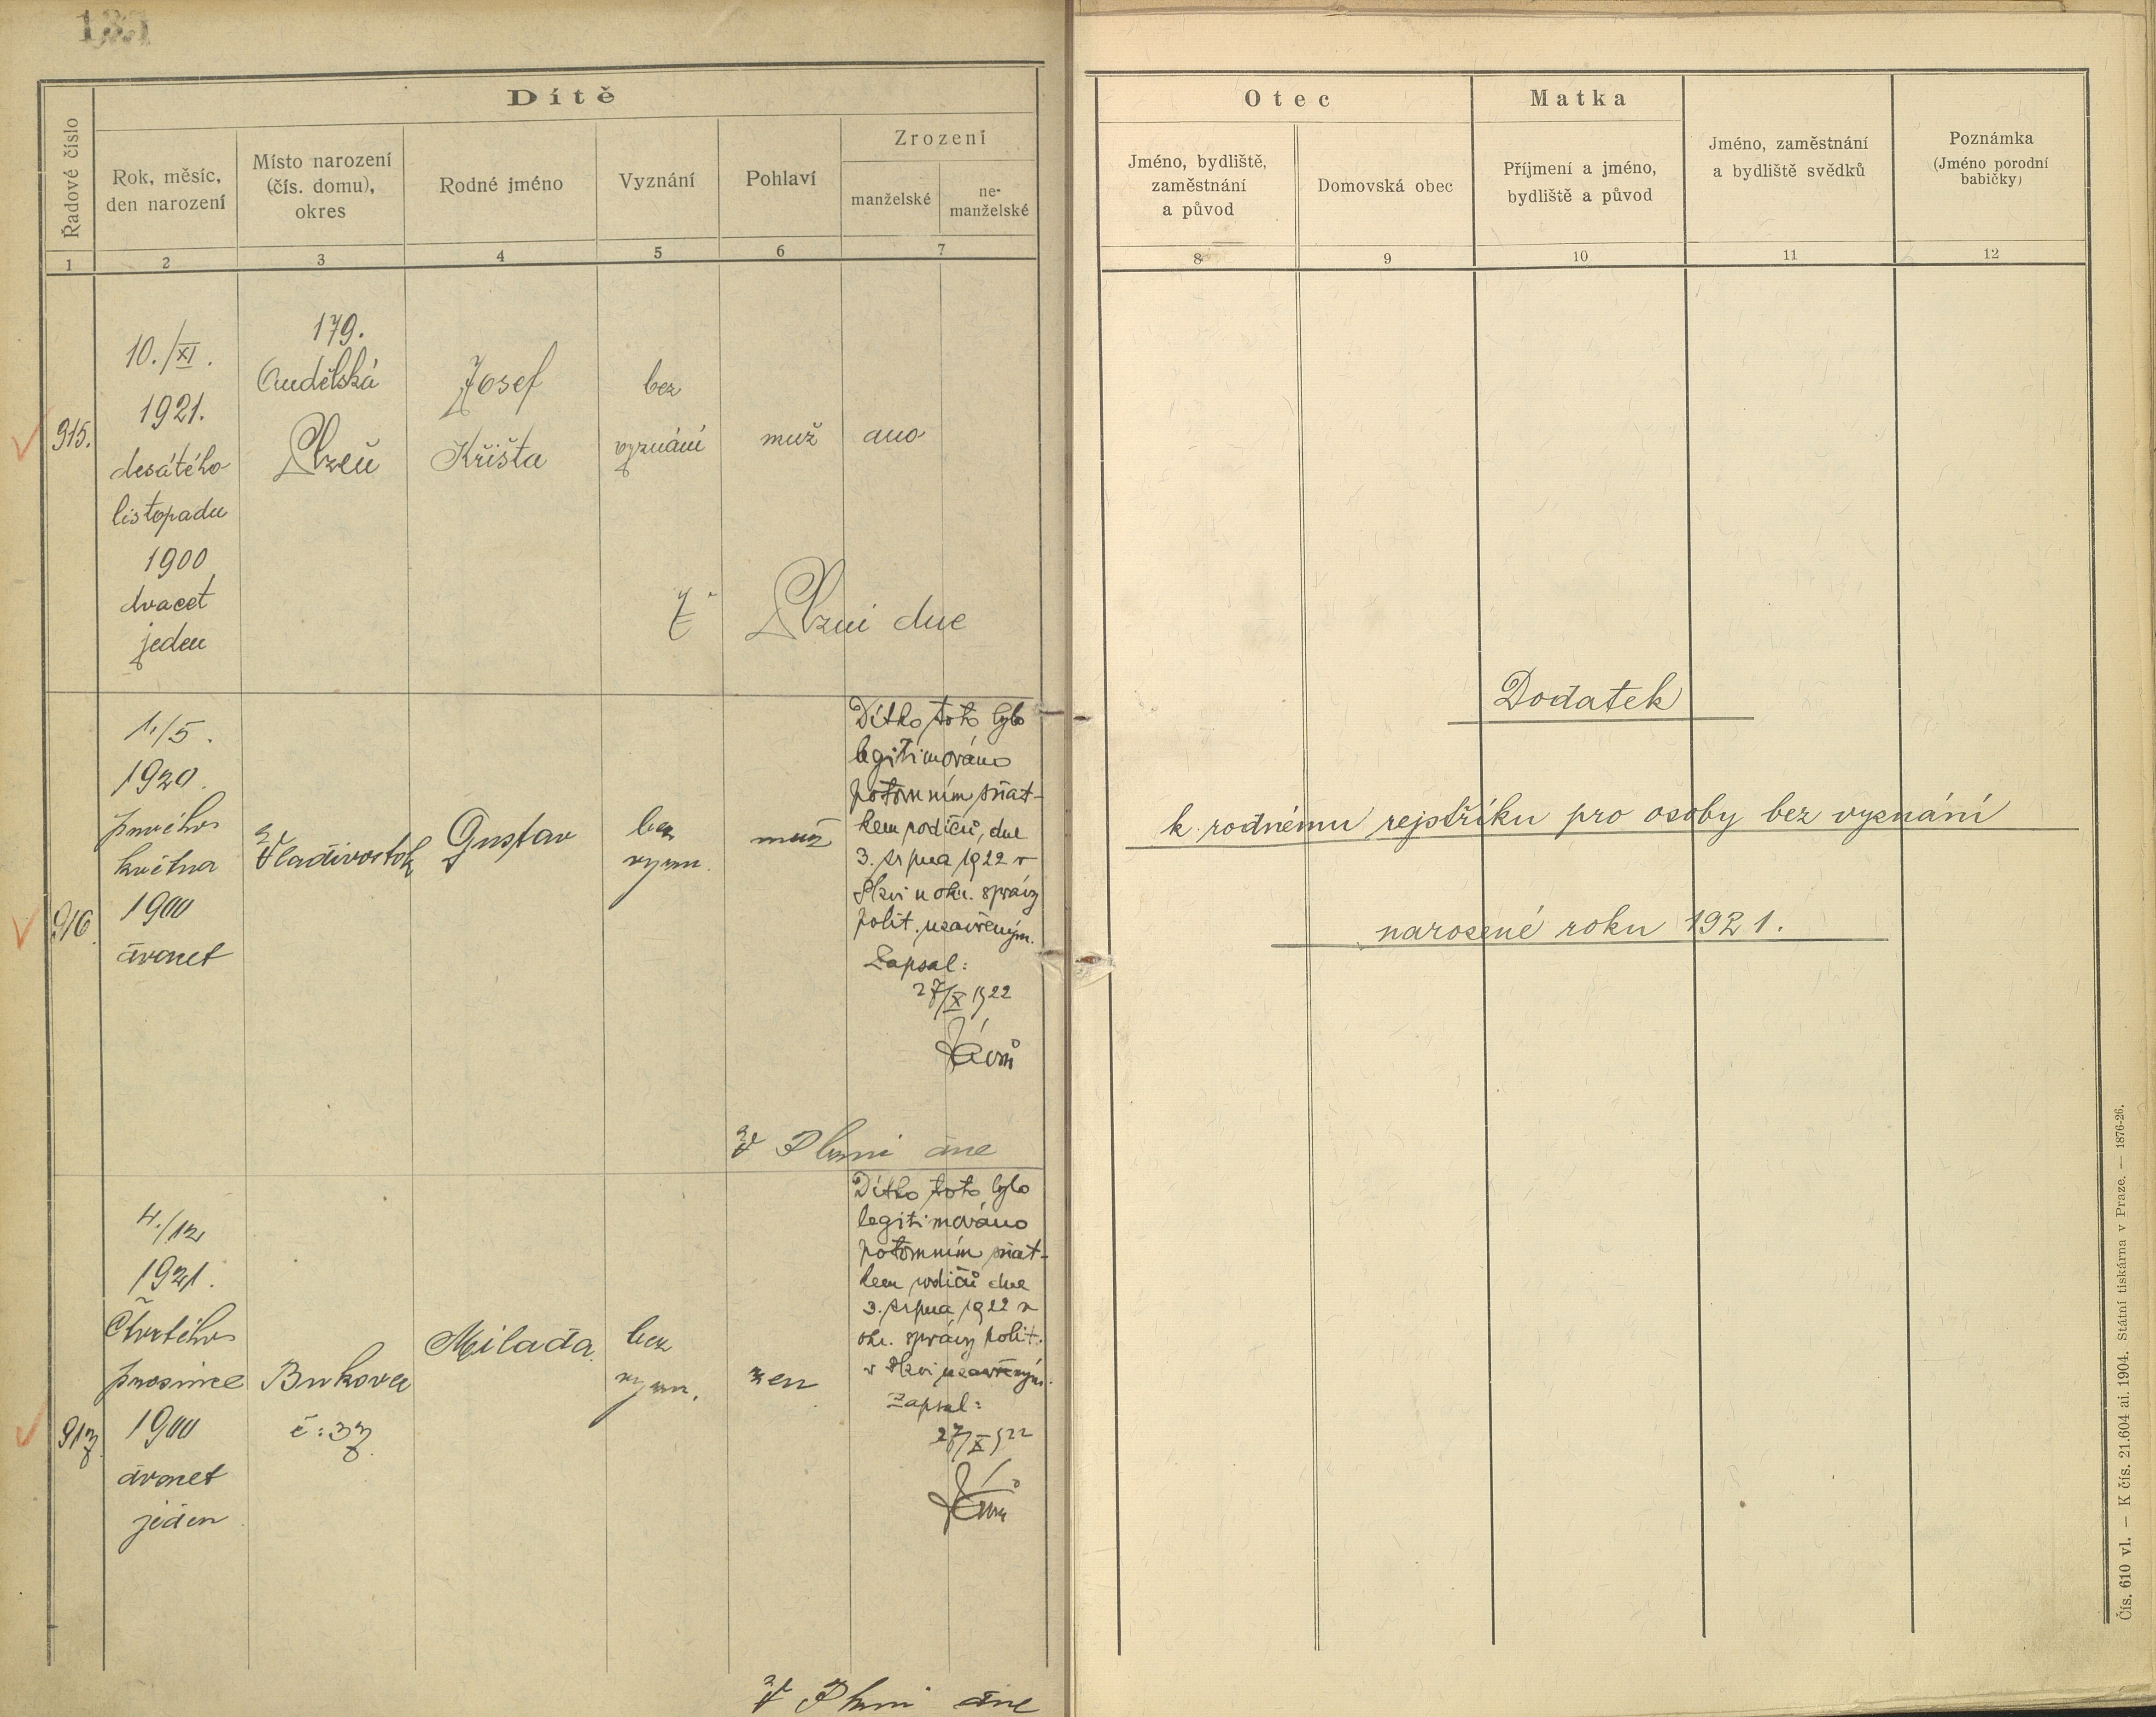 Dítě
Řadové číslo
Rok, měsíc,
den narození
Místo narození
(čís. domu),
okres
Rodné jméno
Vyznání
Pohlaví
Zrození
manželské
ne-
manželské
1
2
3
4
5
6
7
915.
10./XI.
1921.
desátého
listopadu
1900
dvacet
jeden
179.
Andělská
Plzeň
Josef
Křišta
bez
vyznání
muž
ano
V Plzni dne
916.
1./5.
1920.
prvého
května
1900
dvacet
Vladivostok
Gustav
bez
vyzn.
muž
Dítko toto bylo
legitimováno
potomním sňat-
kem rodičů, dne
3. srpna 1922 v
Plzni u okr. správy
polit. uzavřeným.
Zapsal:
27/X 1922
V Plzni dne
917.
4./12
1921.
čtvrtého
prosince
1900
dvacet
jeden
Bukovec
č: 37.
Milada
bez
vyzn.
žen
Dítko toto bylo
legitimováno
potomním sňat-
kem rodičů dne
3. srpna 1922 u
okr. správy polit.
v Plzni uzavřeným.
Zapsal:
27/X 922
V Plzni dne
Otec
Matka
Jméno, bydliště,
zaměstnání
a původ
Domovská obec
Příjmení a jméno,
bydliště a původ
Jméno, zaměstnání
a bydliště svědků
Poznámka
(Jméno porodní
babičky)
8
9
10
11
12
Dodatek
k rodnému rejstříku pro osoby bez vyznání
narozené roku 1921.
Čís. 610 vl. — K čís. 21.604 ai. 1904. Státní tiskárna v Praze. — 1876-26.